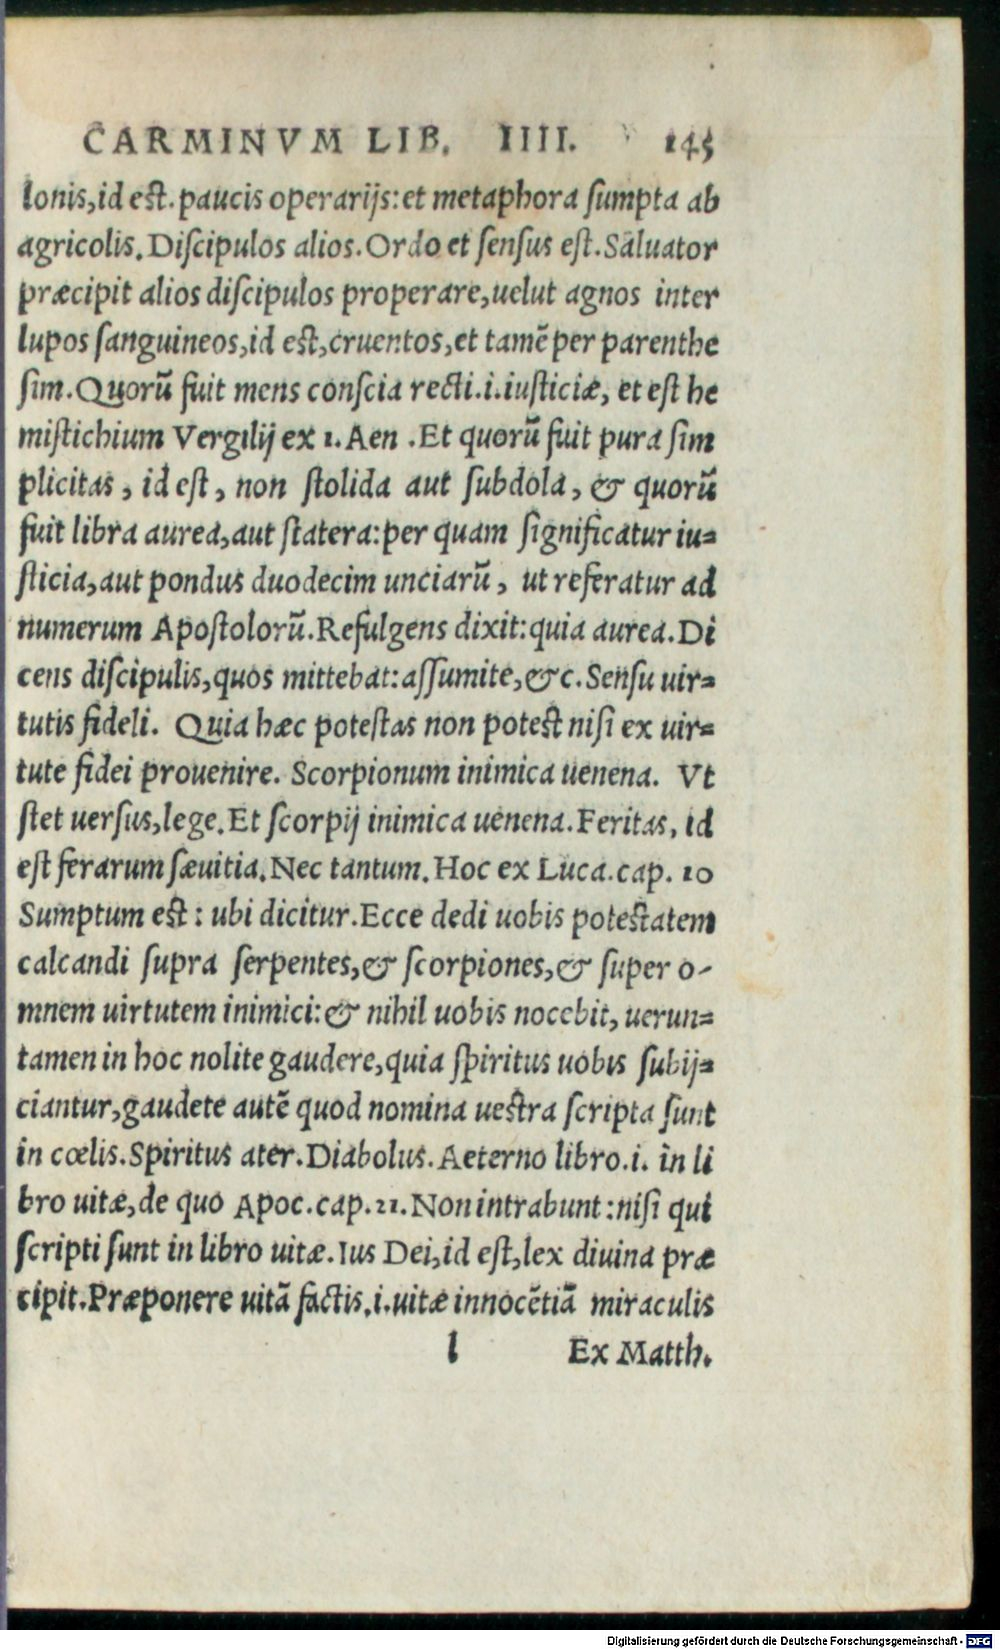 CARMINVM LIB. IIII. 145
lonis,id est.paucis operarijs:et metaphora sumpta ab
agricolis.Discipulos alios.Ordo et sensus est.Saluator
præcipit alios discipulos properare,uelut agnos inter
lupos sanguineos,id est,cruentos,et tamẽ per parenthe
sim.Quorũ fuit mens conscia recti.i.iusticiæ, et est he
mistichium Vergilij ex 1.Aen .Et quorũ fuit pura sim
plicitas, id est, non stolida aut subdola, & quorũ
fuit libra aurea,aut statera:per quam significatur iu=
sticia,aut pondus duodecim unciarũ, ut referatur ad
numerum Apostolorũ.Refulgens dixit:quia aurea.Di
cens discipulis,quos mittebat:assumite,&c.Sensu uir=
tutis fideli. Quia hæc potestas non potest nisi ex uir=
tute fidei prouenire. Scorpionum inimica uenena. Vt
stet uersus,lege.Et scorpij inimica uenena.Feritas, id
est ferarum sæuitia.Nec tantum.Hoc ex Luca.cap. 10
Sumptum est: ubi dicitur.Ecce dedi uobis potestatem
calcandi supra serpentes,& scorpiones,& super o-
mnem uirtutem inimici:& nihil uobis nocebit, uerun=
tamen in hoc nolite gaudere,quia spiritus uobis subij=
ciantur,gaudete autẽ quod nomina uestra scripta sunt
in cœlis.Spiritus ater.Diabolus.Aeterno libro.i. in li
bro uitæ,de quo Apoc.cap.21.Non intrabunt:nisi qui
scripti sunt in libro uitæ.Ius Dei,id est,lex diuina præ
cipit.Præponere uitã factis.i.uitæ innocẽtiã miraculis
l Ex Matth.
Digitalisierung gefördert durch die Deutsche Forschungsgemeinschaft - DFG